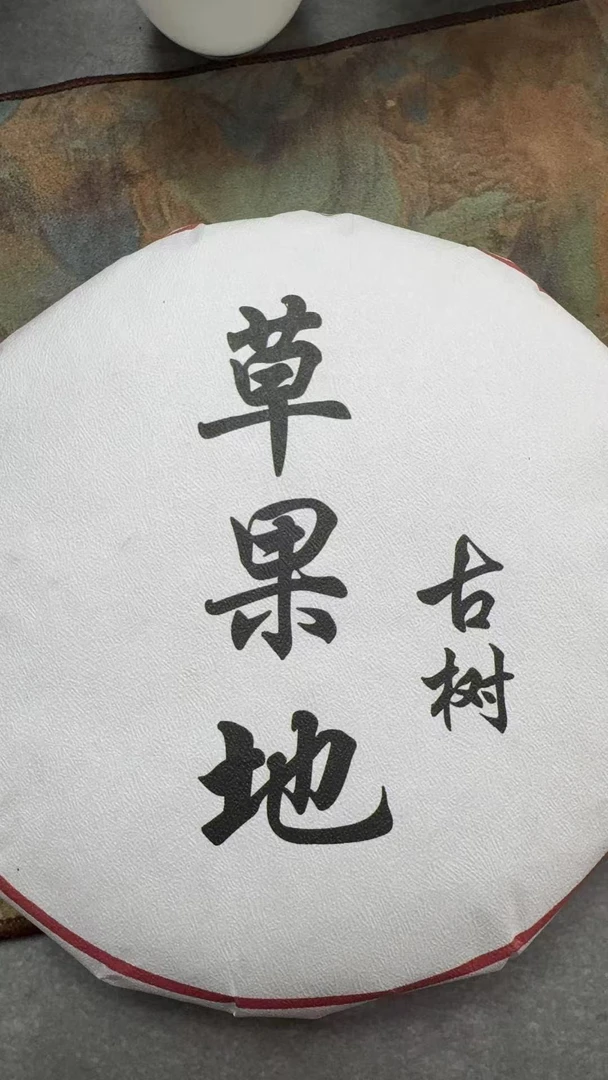 草果地
古树